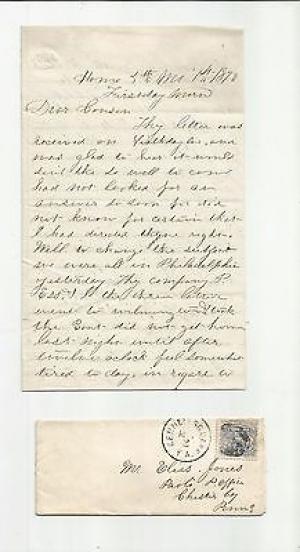 Home 5th Mo. 1st 1870
Firstday morn
Dear Cousin
Thy letter was
received on Fifthday, and
was glad to hear it would
suit the so well to come
had not looked for an
answer so soon for did
not know for certain that
I had directed thyne right.
Well to change the subject
we were all in Philadelphia
yesterday Thy company
went to
the Boat did not get home
last night until after
twelve oclock feel somewhat
tired to day, in regard to
KENNETT SQUARE
PA.
Mr. Jones
Paoli P Office
Chester Co
Penna